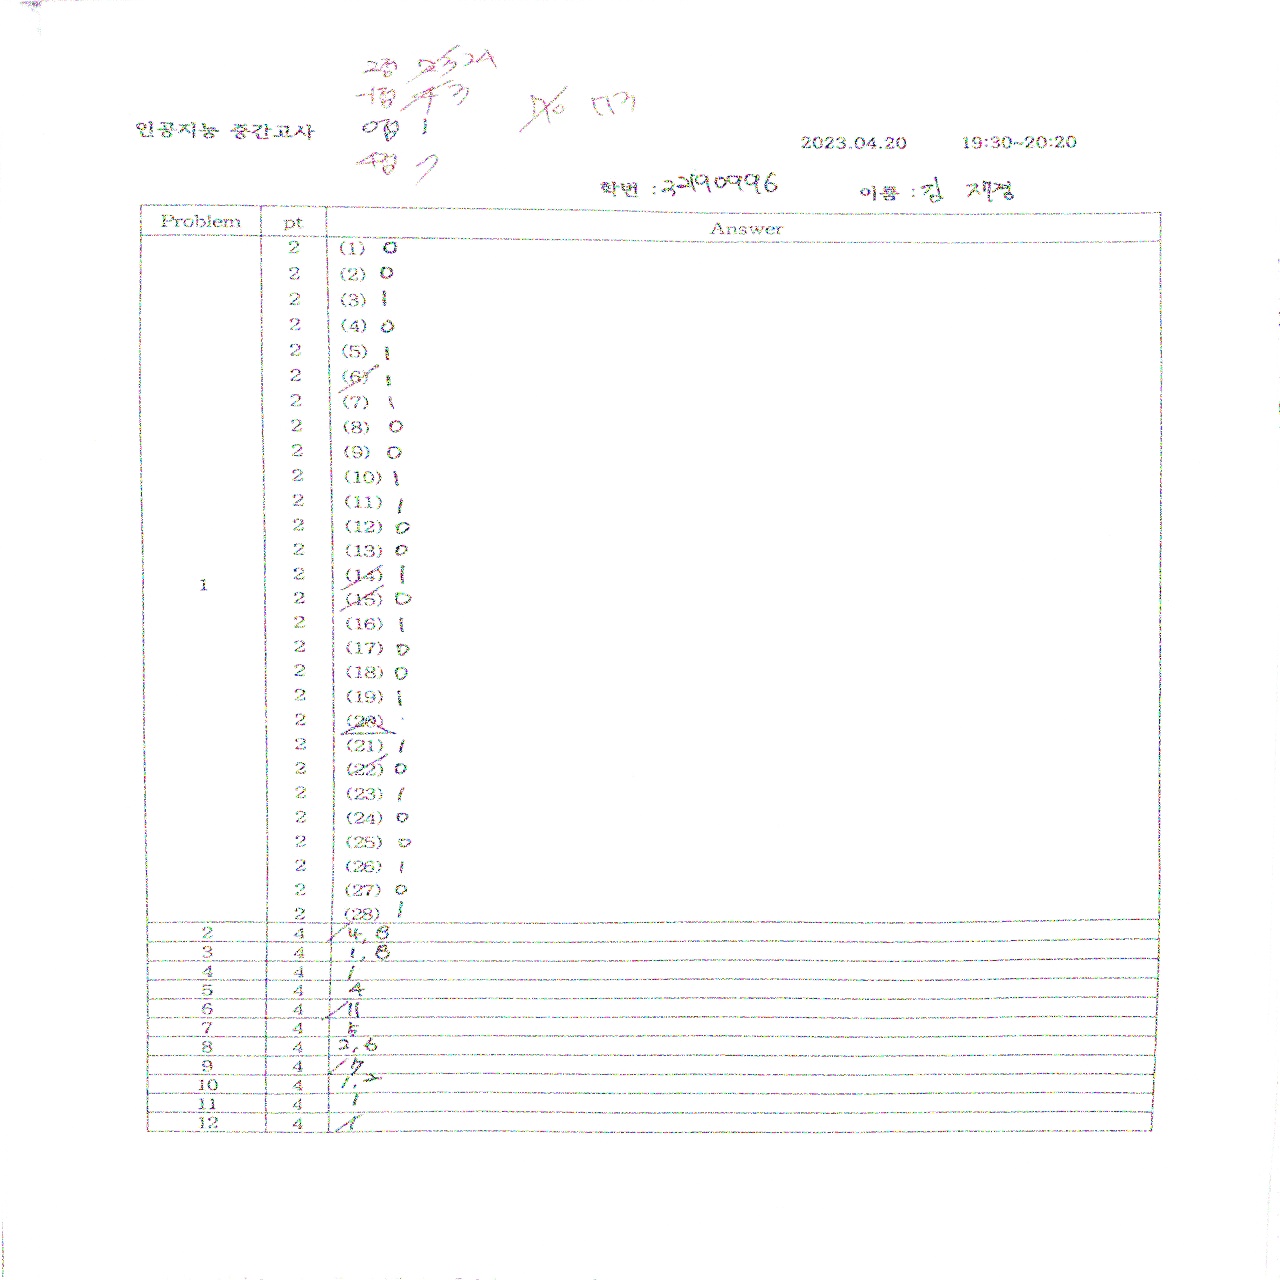 2점 24
-1점 3
인공지능 중간고사 0점 1
2023.04.20 19:30~20:20
4점 7
학번 : 32190996 이름 : 김 재경
Problem pt Answer
2 (1) 0
2 (2) 0
2 (3) 1
2 (4) 0
2 (5) 1
2 (6) 1
2 (7) 1
2 (8) 0
2 (9) 0
2 (10) 1
2 (11) 1
2 (12) 0
2 (13) 0
2 (14) 1
1 2 (15) 0
2 (16) 1
2 (17) 0
2 (18) 0
2 (19) 1
2 (20)
2 (21) 1
2 (22) 0
2 (23) 1
2 (24) 0
2 (25) 0
2 (26) 1
2 (27) 0
2 (28) 1
2 4 4, 8
3 4 1, 8
4 4 1
5 4 4
6 4 11
7 4 5
8 4 2, 6
9 4 7
10 4 1, 2
11 4 1
12 4 1